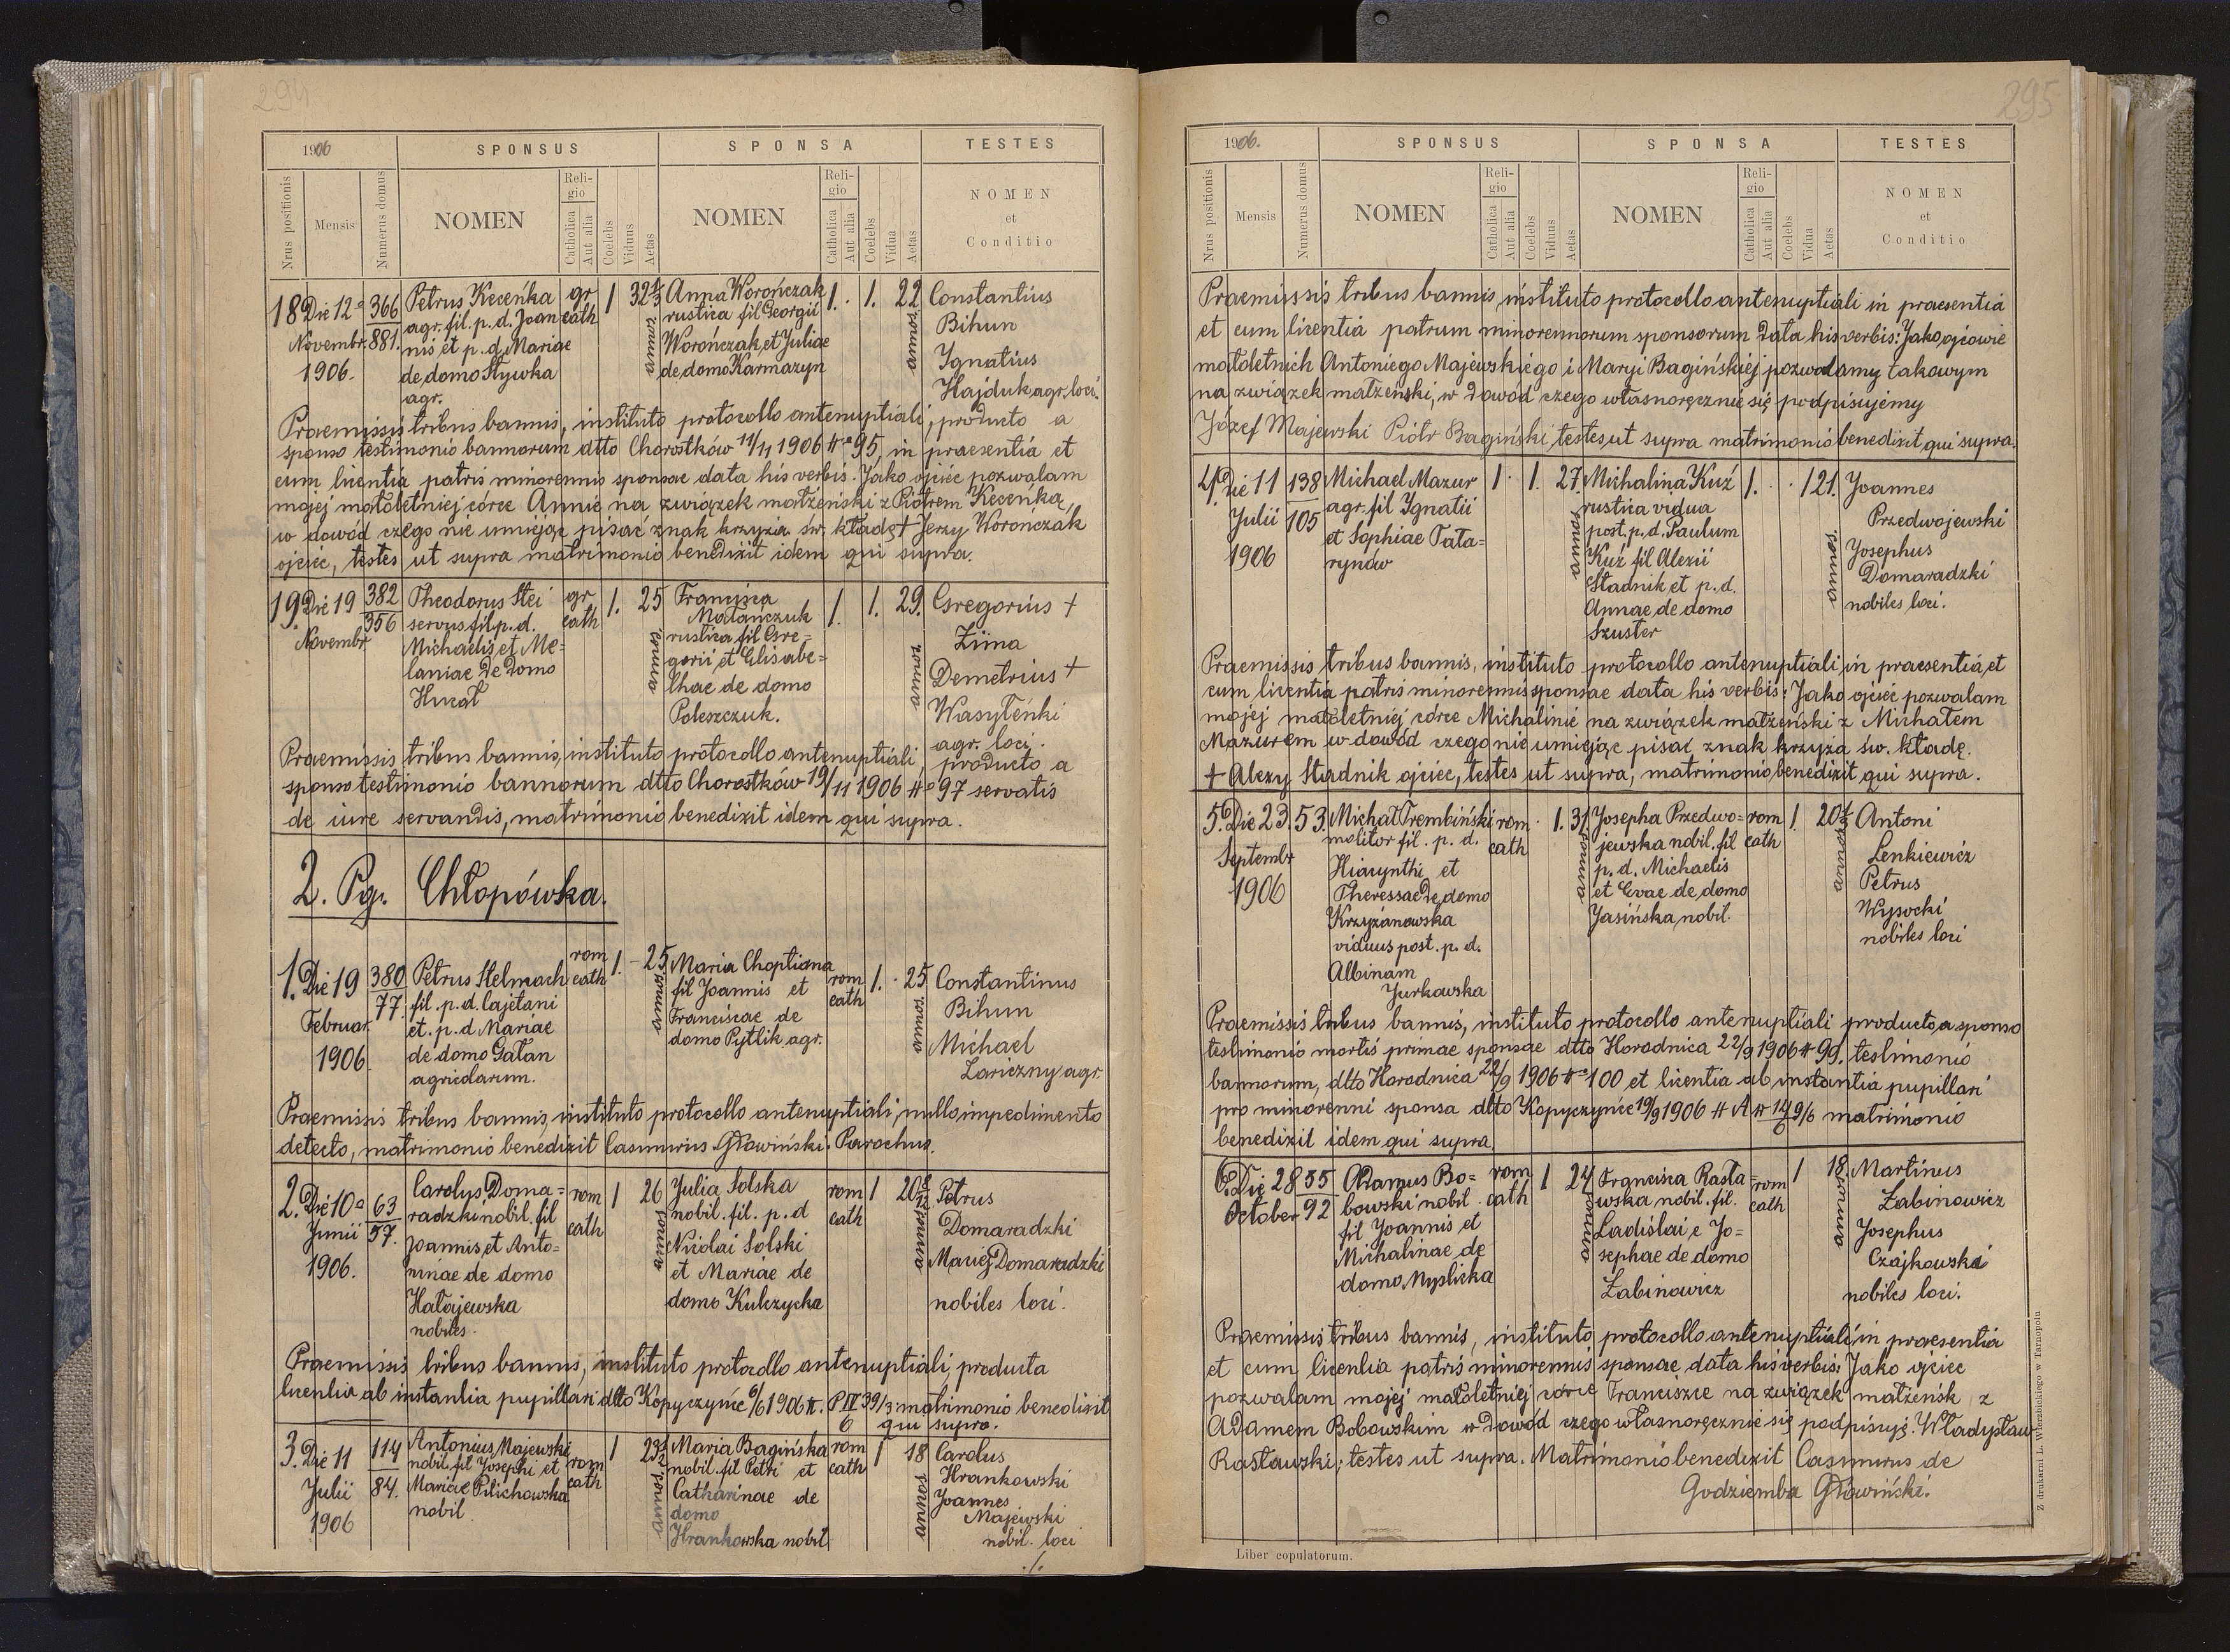 294
1906 SPONSUS SPONSA TESTES
Nrus positionis Mensis Numerus domus NOMEN Religio Catholica Aut alia Coelebs Viduus Aetas NOMEN Religio Catholica Aut alia Coelebs Vidua Aetas NOMEN et Conditio
18 Die 12a Novembr. 1906. 366 881.
Petrus Keceńka
agr. fil. p. d. Joan
nis et p. d. Mariae
de domo Stywka
agr.
gr cath 1 32 annos
Anna Worończak
rustica fil Georgii
Worończak et Juliae
de domo Karmazyn
1. 1. 22 annos
Constantius
Bihun
Ignatius
Hajduk agr. loci.
Praemissis tribus bannis, instituto protocollo antenuptiali, producto a
sponso testimonio bannorum dtto Chorostków 11/11 1906 #o 95, in praesentia et
cum licentia patris minorennis sponsae data his verbis: Jako ojciec pozwalam
mojej małoletniej córce Annie na związek małżeński z Piotrem Kecenką,
w dowód czego nie umiejąc pisać znak krzyża św. kładę + Jerzy Worończak
ojciec, testes ut supra matrimonio benedixit idem qui supra.
19. Die 19 Novembr 382 356
Theodorus Stei
servus fil p. d.
Michaelis et Me=
laniae de domo
Hucał
gr cath 1. 25 annos
Francisca
Matańczuk
rustica fil Gre=
gorii et Elisabe=
thae de domo
Poleszczuk.
1. 1. 29. annos
Gregorius +
Zima
Demetrius +
Wasyleńki
agr. loci.
Praemissis tribus bannis, instituto protocollo antenuptiali, producto a
sponso testimonio bannorum dtto Chorostków 19/11 1906 #o 97 servatis
de iure servandis, matrimonio benedixit idem qui supra.
2. Pg. Chłopówka.
1. Die 19 Februar. 1906. 380 77.
Petrus Stelmach
fil. p. d. Cajetani
et. p. d Mariae
de domo Gałan
agricolarum.
rom cath 1. - 25 annos
Maria Choptiana
fil Joannis et
Franciscae de
domo Pytlik agr.
rom cath 1. 25 annos
Constantinus
Bihun
Michael
Lariczny agr.
Praemissis tribus bannis, instituto protocollo antenuptiali, nullo impedimento
detecto, matrimonio benedixit Casimirus Gławiński. Parochus.
2. Die 10a Junii 1906. 63 57.
Carolus Doma=
radzki nobil. fil
Joannis et Anto=
ninae de domo
Hałajewska
nobiles.
rom cath 1 26 annos
Julia Solska
nobil. fil. p. d
Nicolai Solski
et Mariae de
domo Kulczycka
rom cath 1 20 8/12 annos
Petrus
Domaradzki
Maciej Domaradzki
nobiles loci.
Praemissis tribus bannis, instituto protocollo antenuptiali, producta
licentia ab instantia pupillari dtto Kopyczyńce 6/6 1906 #. P IV 39/6 3 matrimonio benedixit
qui supra.
3. Die 11 Julii 1906 114 84.
Antonius Majewski
nobil. fil Josephi et
Mariae Pilichowska
nobil
rom cath 1 23 annos
Maria Bagińska
nobil. fil Petri et
Catharinae de
domo
Hrankowska nobil
rom cath 1 18 annos
Carolus
Hrankowski
Joannes
Majewski
nobil. loci
./.
295
1906. SPONSUS SPONSA TESTES
Nrus positionis Mensis Numerus domus NOMEN Religio Catholica Aut alia Coelebs Viduus Aetas NOMEN Religio Catholica Aut alia Coelebs Vidua Aetas NOMEN et Conditio
Praemissis tribus bannis, instituto protocollo antenuptiali in praesentia
et cum licentia patrum minorennorum sponsorum data his verbis: Jako ojcowie
małoletnich Antoniego Majewskiego i Maryi Bagińskiej pozwalamy takowym
na związek małżeński, w dowód czego własnoręcznie się podpisujemy
Józef Majewski Piotr Bagiński testes ut supra matrimonio benedixit qui supra.
4. Die 11 Julii 1906 138 105
Michael Mazur
agr. fil Ignatii
et Sophiae Tata=
rynów
1. 1. 27. annos
Michalina Kuź
rustica vidua
post. p. d. Paulum
Kuź fil Alexii
Stadnik et p. d.
Annae de domo
Szuster
1. . 1 21. annos
Joannes
Przedwojewski
Josephus
Domaradzki
nobiles loci.
Praemissis tribus bannis, instituto protocollo antenuptiali, in praesentia, et
cum licentia patris minorennis sponsae data his verbis: Jako ojciec pozwalam
mojej małoletniej córce Michalinie na związek małżeński z Michałem
Mazurem w dowód czego nie umiejąc pisać znak krzyża św. kładę.
+ Alexy Stadnik ojciec, testes ut supra, matrimonio benedixit qui supra.
5. Die 23. Septembr 1906 53.
Michał Trembiński
molitor fil. p. d.
Hiacynthi et
Theressae de domo
Krzyżanowska
viduus post. p. d.
Albinam
Jurkowska
rom cath . 1. 31 annos
Josepha Przedwo=
jewska nobil. fil
p. d. Michaelis
et Evae de domo
Jasińska nobil.
rom cath 1. 20 annos
Antoni
Lenkiewicz
Petrus
Wysocki
nobiles loci
Praemissis tribus bannis, instituto protocollo antenuptiali producto a sponso
testimonio mortis primae sponsae dtto Horodnica 22/9 1906 # 99. testimonio
bannorum, dtto Horodnica 22/9 1906 #o 100 et licentia ab instantia pupillari
pro minorenni sponsa dtto Kopyczyńce 19/9 1906 # A # 12/6 9/6 matrimonio
benedixit idem qui supra.
6. Die 28 October 55 92
Adamus Bo=
bowski nobil.
fil Joannis et
Michalinae de
domo Myslicka
rom cath 1 24 annos
Francisca Rasta=
wska nobil. fil.
Ladislai e Jo=
sephae de domo
Łabinowicz
rom cath 1 18. annos
Martinus
Łabinowicz
Josephus
Czajkowski
nobiles loci.
Praemissis tribus bannis, instituto protocollo antenuptiali in praesentia
et cum licentia patris minorennis sponsae, data his verbis: Jako ojciec
pozwalam mojej małoletniej córce Franciszce na związek małżeńsk z
Adamem Bobowskim w dowód czego własnoręcznie się podpisuję. Władysław
Rastawski; testes ut supra. Matrimonio benedixit Casimirus de
Godziemba Gławiński.
Liber copulatorum.
Z drukarni L. Wierzbickiego w Tarnopolu